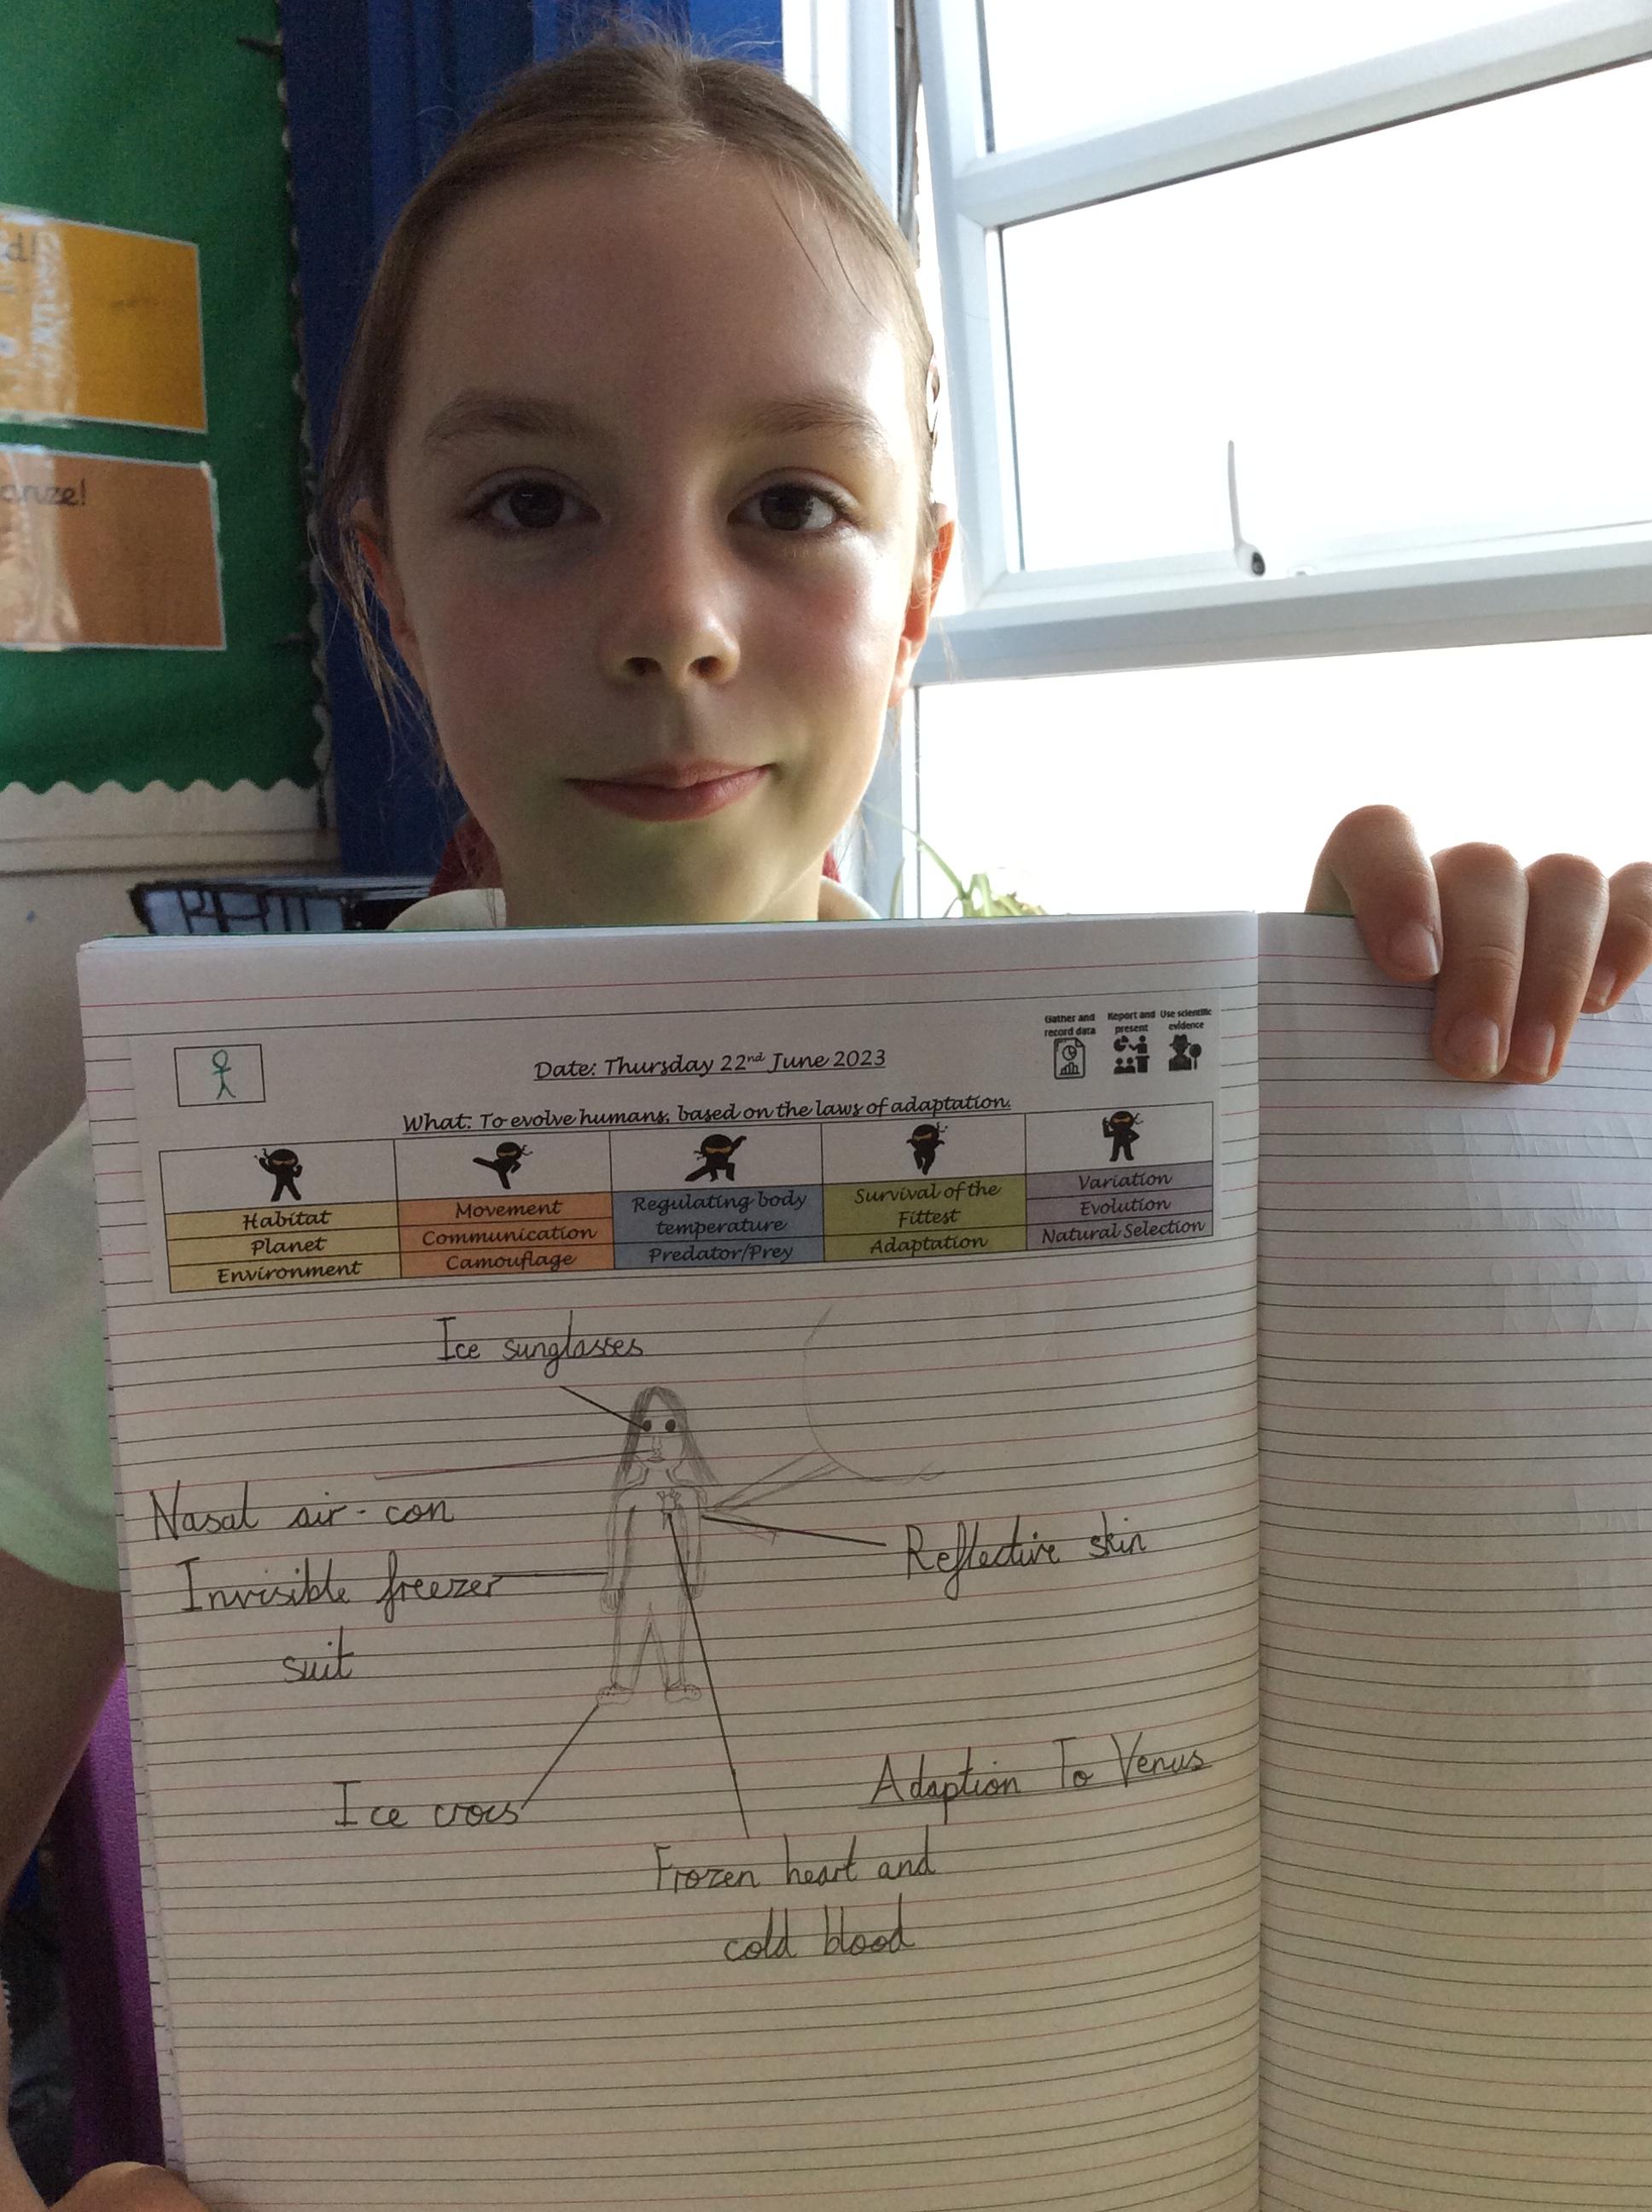 d!
anze!
Gather and
record data
Report and
present
Use scientific
evidence
Date: Thursday 22nd June 2023
What: To evolve humans, based on the laws of adaptation.
Habitat
Planet
Environment
Movement
Communication
Camouflage
Regulating body
temperature
Predator/Prey
Survival of the
Fittest
Adaptation
Variation
Evolution
Natural Selection
Ice sunglasses
Nasal air-con
Reflective skin
Invisible freezer
suit
Adaption To Venus
Ice crocs
Frozen heart and
cold blood